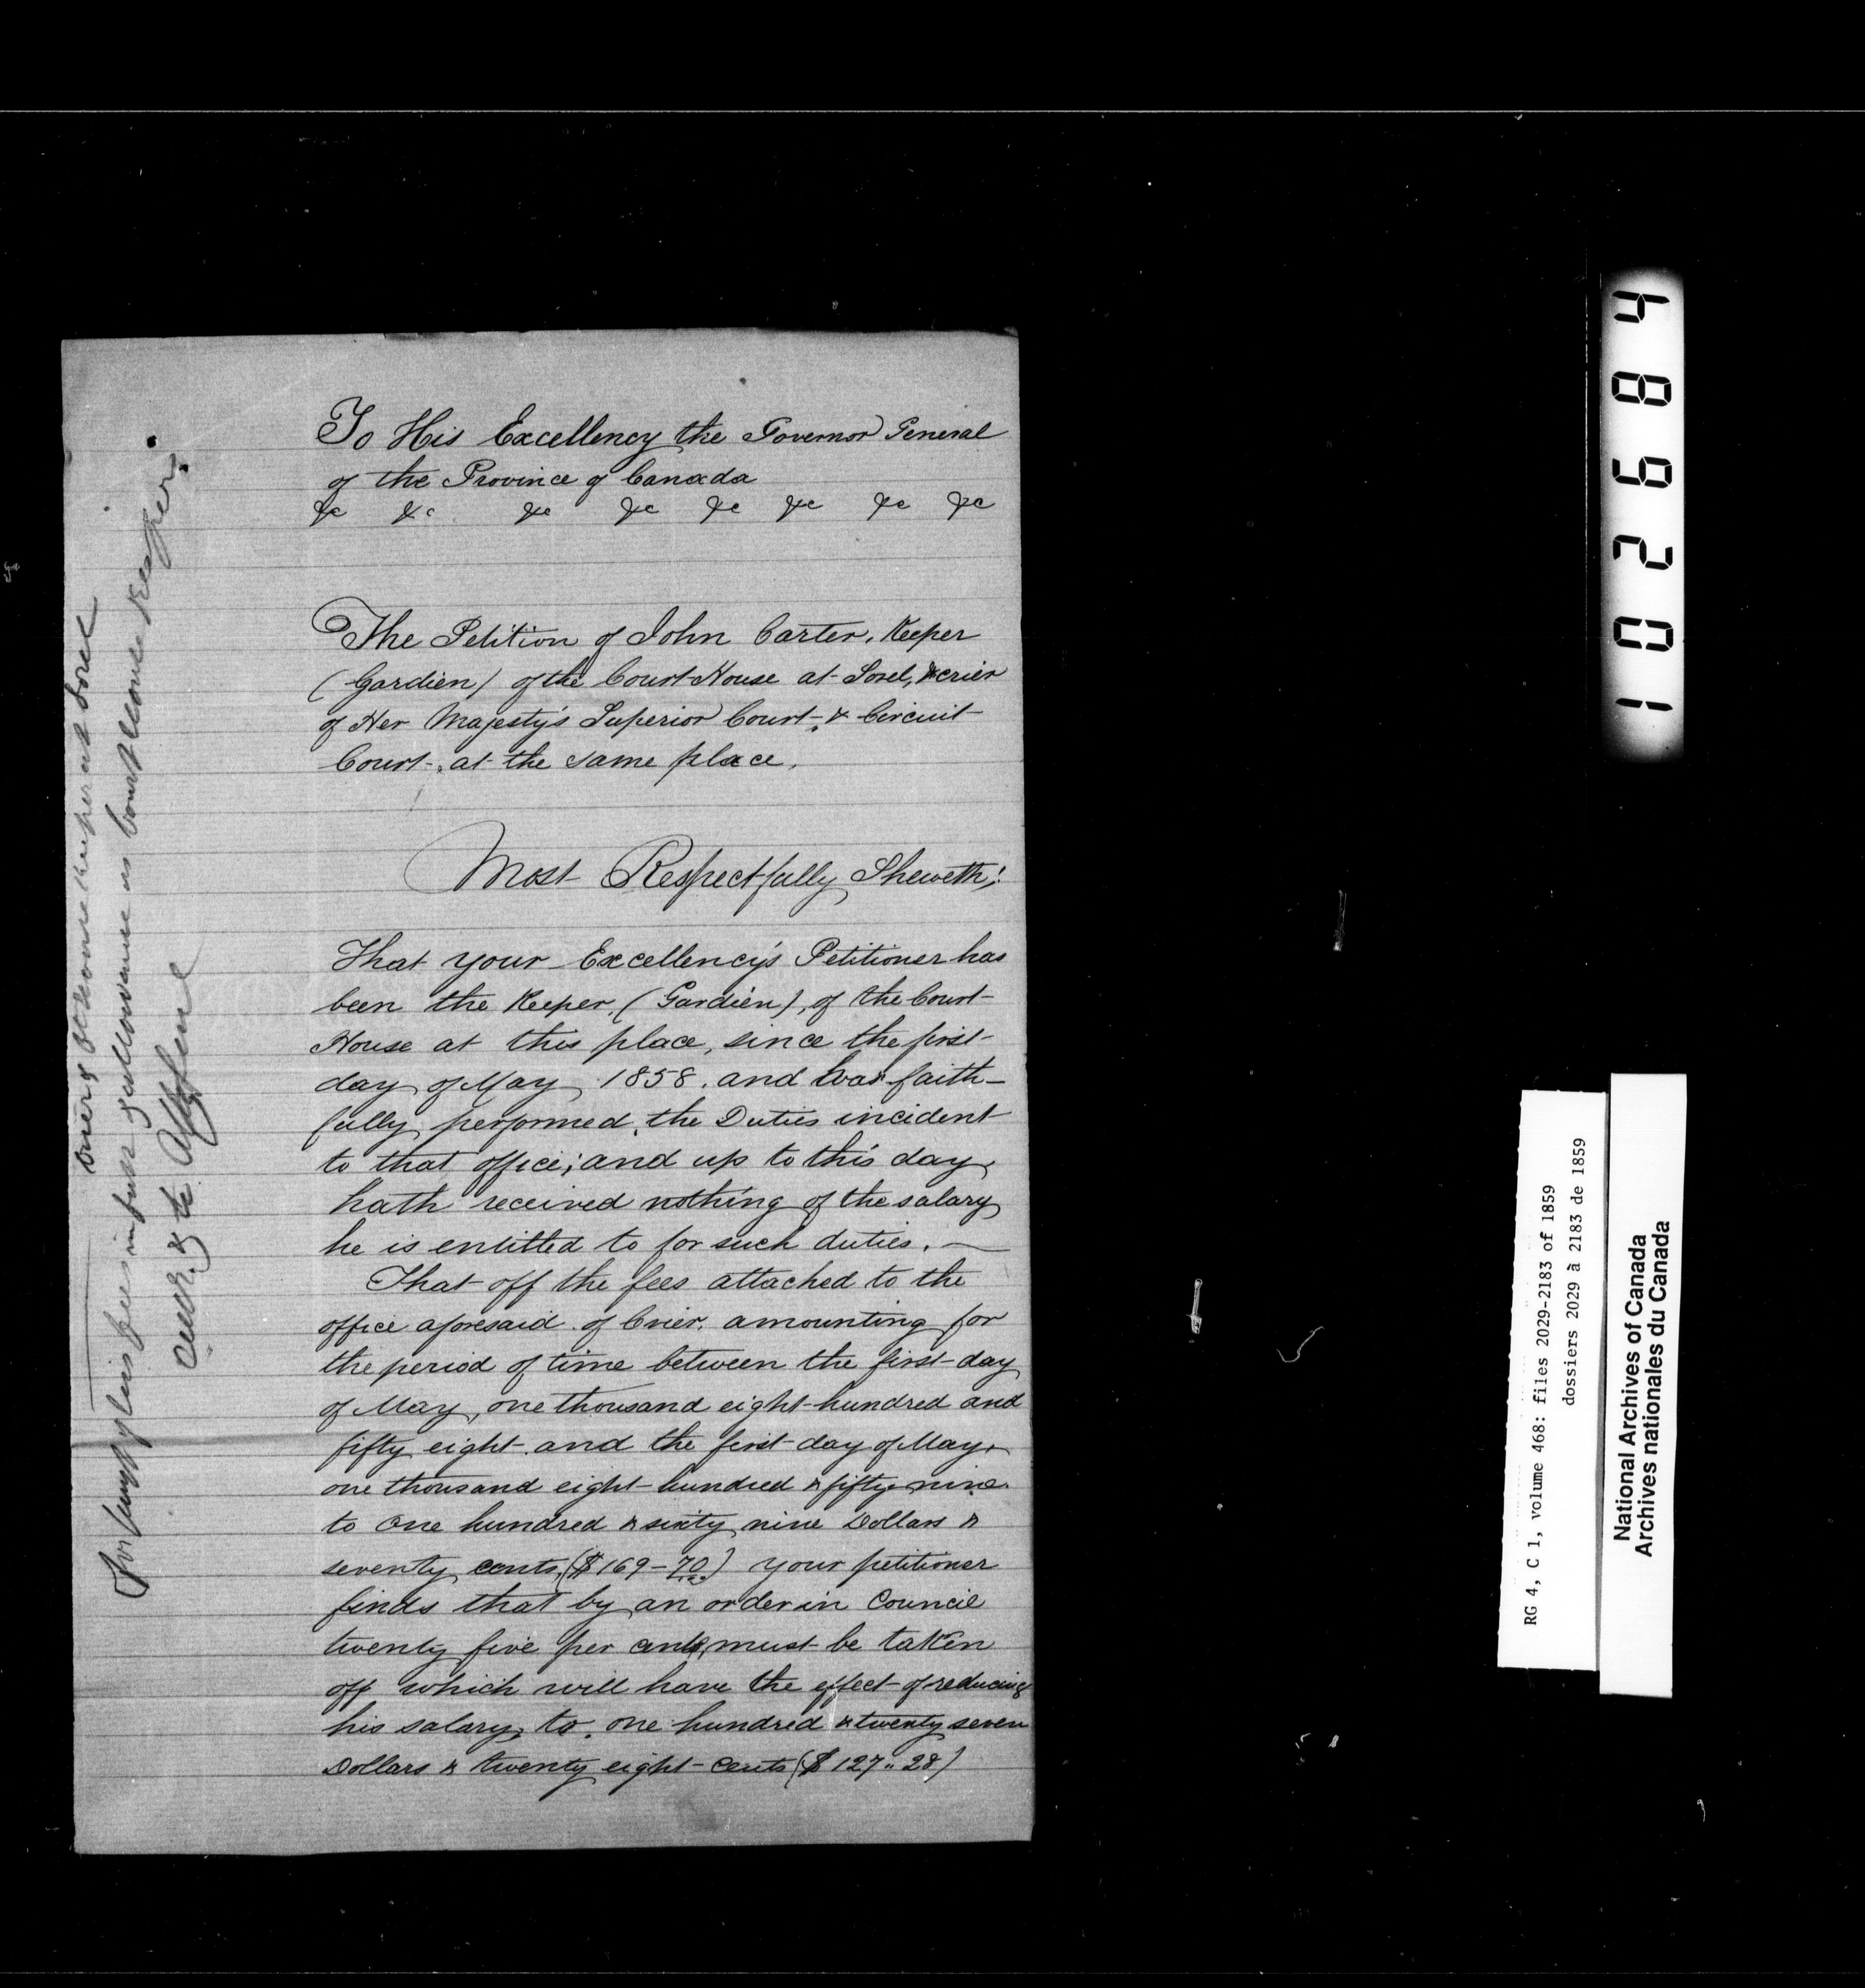 To His Excellency the Governor General
of the Province of Canada
&c &c &c &c &c &c &c &c
The Petition of John Carter, Keeper
(Gardien) of the Court House at Sorel, & crier
of Her Majesty's Superior Court, & Circuit
Court, at the same place,
Most Respectfully Sheweth;
That your Excellency's Petitioner has
been the Keeper, (Gardien), of the Court
House at this place, since the first
day of May 1858. and has faith-
fully performed, the Duties incident
to that office; and up to this day
hath received nothing of the salary
he is entitled to for such duties. —
That off the fees attached to the
office aforesaid of Crier, amounting for
the period of time between the first day
of May, one thousand eight hundred and
fifty eight and the first day of May,
one thousand eight hundred & fifty nine
to One hundred & sixty nine Dollars &
seventy cents, ($169-70) your petitioner
finds that by an order in Council
twenty five per cent, must be taken
off which will have the effect of reducing
his salary, to, one hundred & twenty seven
Dollars & twenty eight cents ($127"28)
Crier & Court House Keeper at Sorel
his fees in full & allowance as Court House Keeper.
102684
RG 4, C 1, volume 468: files 2029-2183 of 1859
dossiers 2029 à 2183 de 1859
National Archives of Canada
Archives nationales du Canada